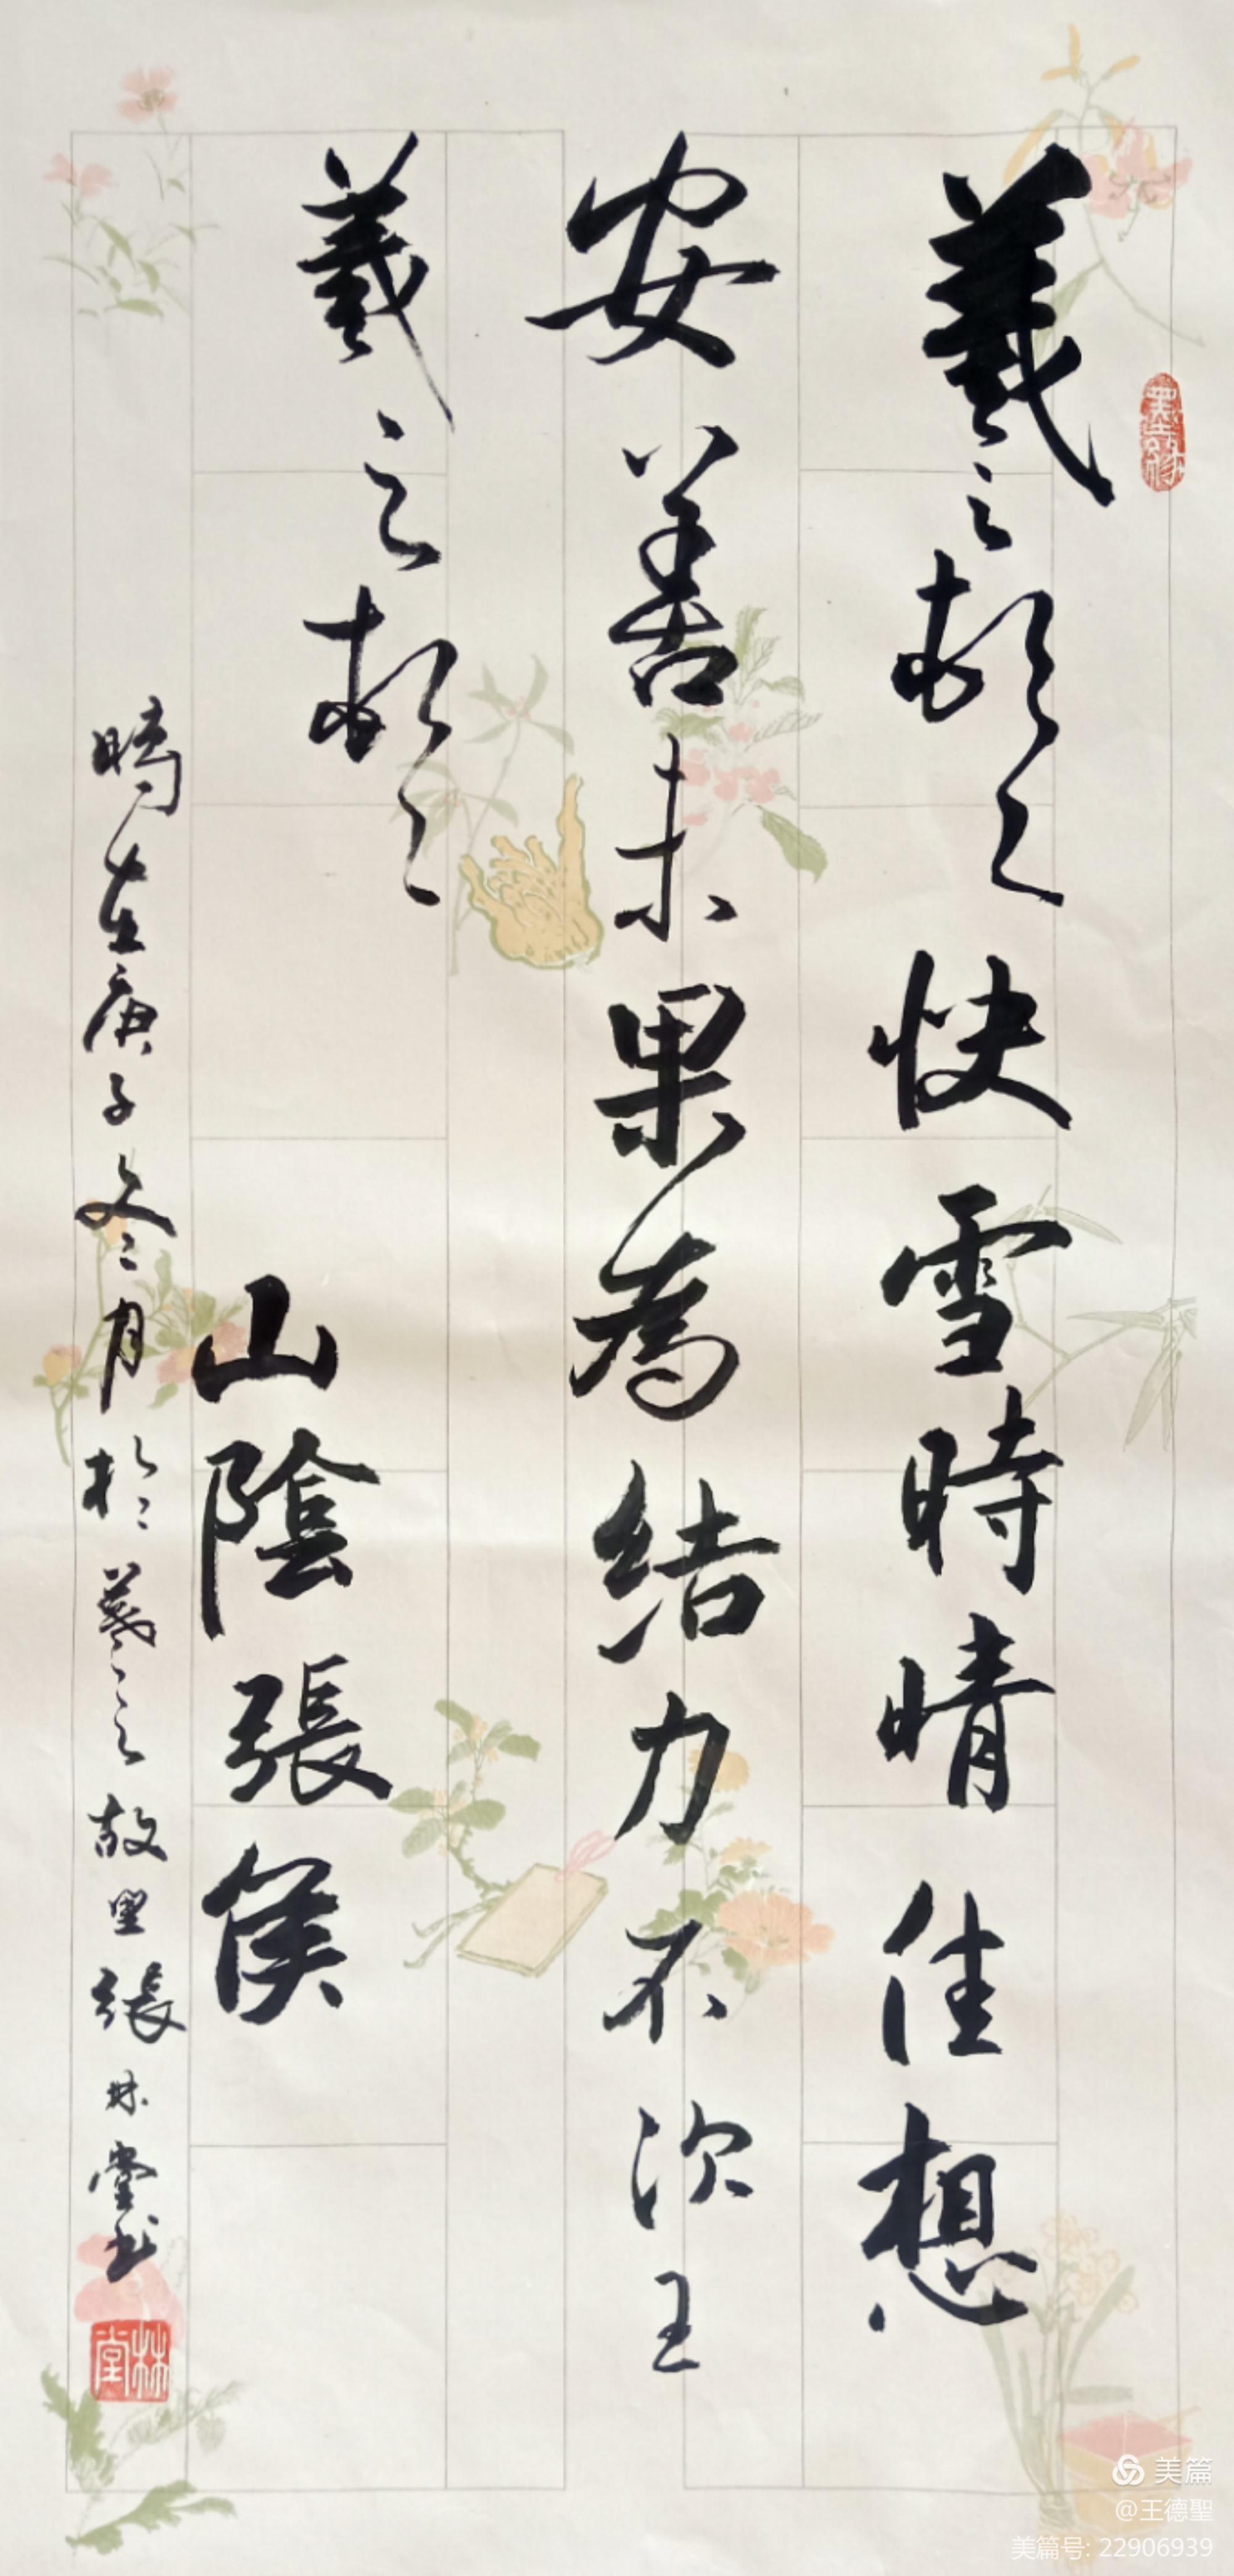 羲之頓首快雪時晴佳想
安善未果為結力不次王
羲之頓首
山陰張侯
時在庚子冬月於羲之故里張林堂书
林堂
美篇
@王德聖
美篇号: 22906939